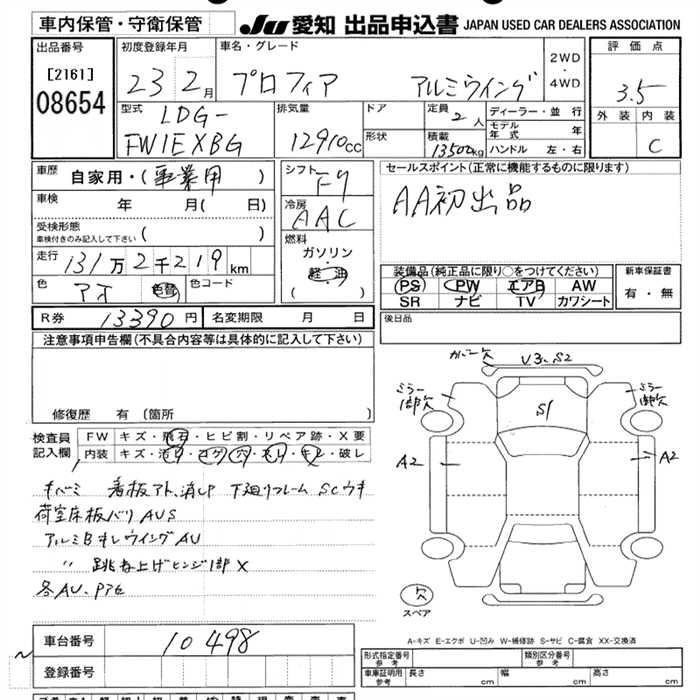 車内保管・守衛保管
JU 愛知 出品申込書 JAPAN USED CAR DEALERS ASSOCIATION
出品番号
[2161]
08654
初度登録年月
23 2月
車名・グレード
プロフィア アルミウイング
2WD
・
4WD
評価点
3.5
外装 内装
C
型式
LDG-
FW1EXBG
排気量
12910cc
ドア
形状
定員 2人
積載 13500kg
ディーラー・並行
モデル年式 年
ハンドル 左・右
車歴 自家用・(事業用)
車検 年 月( 日)
受検形態
車検付きのみ記入して下さい ( )
走行 131万2千219km
色 アオ 色替 色コード
シフト
F7
冷房
AAC
燃料
ガソリン
・
軽油
( )
セールスポイント(正常に機能するものに限ります)
AA初出品
装備品(純正品に限り○をつけてください)
PS PW エアB AW
SR ナビ TV カワシート
新車保証書
有・無
R券 13390円 名変期限 月 日
後日品
注意事項申告欄(不具合内容等は具体的に記入して下さい)
修復歴 有 (箇所 )
検査員記入欄
FW キズ・飛石・ヒビ割・リペア跡・X要
内装 キズ・汚れ・コゲ・穴・スレ・キレ・破レ
看板アト、消し 下廻りフレーム SCウキ
荷室床板バリ AUS
アルミBオレウイングAU
〃 跳ね上げヒンジ1部X
各AU、
カバー欠 V3、S2
ミラー1部欠
S1
ミラー1部欠
A2
A2
欠
スペア
A-キズ E-エクボ U-凹み W-補修跡 S-サビ C-腐食 XX-交換済
車台番号 10498
登録番号
形式指定番号 参考
類別区分番号 参考
車庫証明用 参考 長さ cm 幅 cm 高さ cm